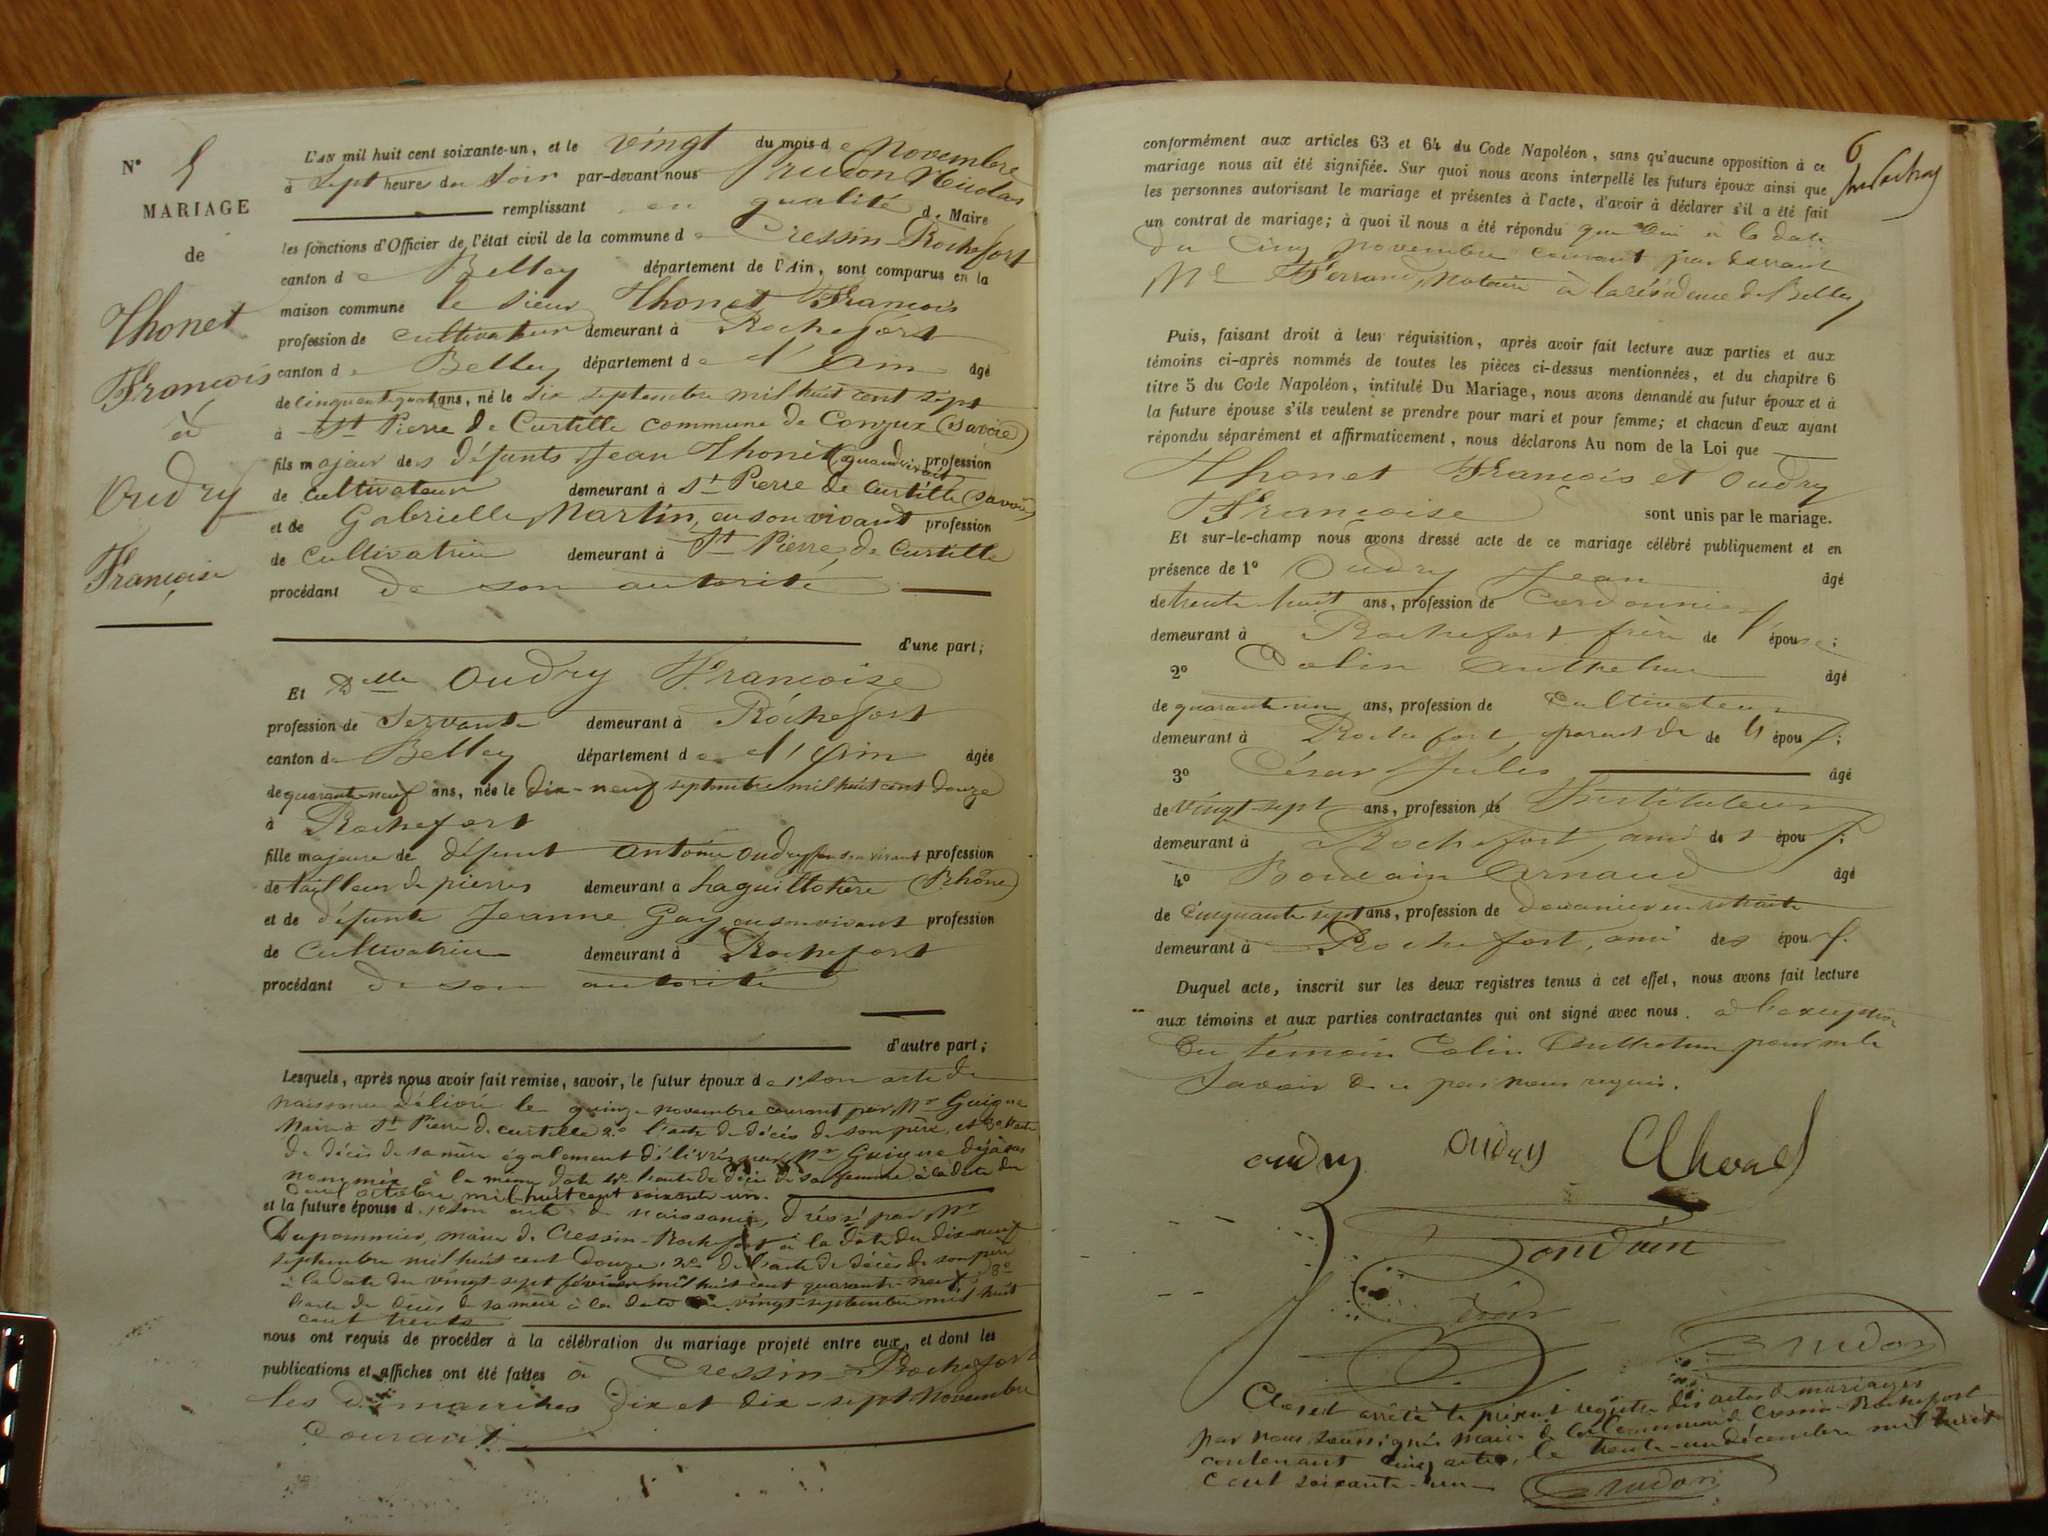 N° 5
MARIAGE
de
Thonet
François
à
Oudry
Françoise
L'AN mil huit cent soixante-un, et le vingt du mois de novembre
à Sept heures du Soir par-devant nous Prudon Nicolas
remplissant en qualité de Maire
les fonctions d'Officier de l'état civil de la commune de Cressin-Rochefort
canton de Belley département de l'Ain, sont comparus en la
maison commune le Sieur Thonet François
profession de cultivateur demeurant à Rochefort
canton de Belley département de l'Ain âgé
de cinquante quatre ans, né le six septembre mil huit cent sept
à St Pierre de Curtille commune de Conjux (Savoie)
fils majeur des défunts Jean Thonet (quand vivait profession
de cultivateur demeurant à St Pierre de Curtille (Savoie)
et de Gabrielle Martin, en son vivant profession
de Cultivatrice demeurant à St Pierre de Curtille
procédant de son autorité
d'une part;
Et Delle Oudry Françoise
profession de Servante demeurant à Rochefort
canton de Belley département de l'Ain âgée
de quarante neuf ans, née le dix-neuf septembre mil huit cent douze
à Rochefort
fille majeure de défunt Antoine Oudry en son vivant profession
de tailleur de pierres demeurant à Laguillotière (Rhône)
et de défunte Jeanne Gay, en son vivant profession
de Cultivatrice demeurant à Rochefort
procédant de son autorité
d'autre part;
Lesquels, après nous avoir fait remise, savoir, le futur époux de 1° son acte de
naissance délivré le quinze novembre courant par Mr Guigue
Maire à St Pierre de Curtille 2° l'acte de décès de son père, et 3° l'acte
de décès de sa mère également délivrés par Mr Guigue déjà
nommé à la même date 4° l'acte de décès de sa femme à la date du
octobre mil huit cent soixante-un.
et la future épouse de 1° son acte de naissance, dressé par Mr
Dupommier, maire de Cressin-Rochefort à la date du dix-neuf
septembre mil huit cent douze, 2° de l'acte de décès de son père
à la date du vingt-sept février mil huit cent quarante-neuf, 3°
l'acte de décès de sa mère à la date du vingt septembre mil huit
cent trente
nous ont requis de procéder à la célébration du mariage projeté entre eux, et dont les
publications et affiches ont été faites à Cressin-Rochefort
les dimanches dix et dix-sept Novembre
Courant.
6
conformément aux articles 63 et 64 du Code Napoléon, sans qu'aucune opposition à ce
mariage nous ait été signifiée. Sur quoi nous avons interpellé les futurs époux ainsi que
les personnes autorisant le mariage et présentes à l'acte, d'avoir à déclarer s'il a été fait
un contrat de mariage; à quoi il nous a été répondu que oui à la date
du Cinq novembre courant par devant
Me Ferrand, Notaire à la résidence de Belley
Puis, faisant droit à leur réquisition, après avoir fait lecture aux parties et aux
témoins ci-après nommés de toutes les pièces ci-dessus mentionnées, et du chapitre 6
titre 5 du Code Napoléon, intitulé Du Mariage, nous avons demandé au futur époux et à
la future épouse s'ils veulent se prendre pour mari et pour femme; et chacun d'eux ayant
répondu séparément et affirmativement, nous déclarons Au nom de la Loi que
Thonet François et Oudry
Françoise sont unis par le mariage.
Et sur-le-champ nous avons dressé acte de ce mariage célébré publiquement et en
présence de 1° Oudry Jean âgé
de trente huit ans, profession de Cordonnier
demeurant à Rochefort frère de l'épouse;
2° Colin Anthelme âgé
de quarante-un ans, profession de Cultivateur
demeurant à Rochefort, parent de de l'épou
3° César Jules âgé
de vingt-sept ans, profession de Instituteur
demeurant à Rochefort, ami des épou
4° Boudain Arnaud âgé
de cinquante sept ans, profession de douanier en retraite
demeurant à Rochefort, ami des épou
Duquel acte, inscrit sur les deux registres tenus à cet effet, nous avons fait lecture
aux témoins et aux parties contractantes qui ont signé avec nous. à l'exception
du témoin Colin Anthelme pour ne le
Savoir de ce par nous requis.
oudry oudry
Boudain
Prudon
Clos et arrêté le présent registre des actes de mariages
par nous soussigné Maire de la Commune de Cressin-Rochefort
contenant cinq actes, le trente-un décembre mil huit
cent soixante-un
Prudon